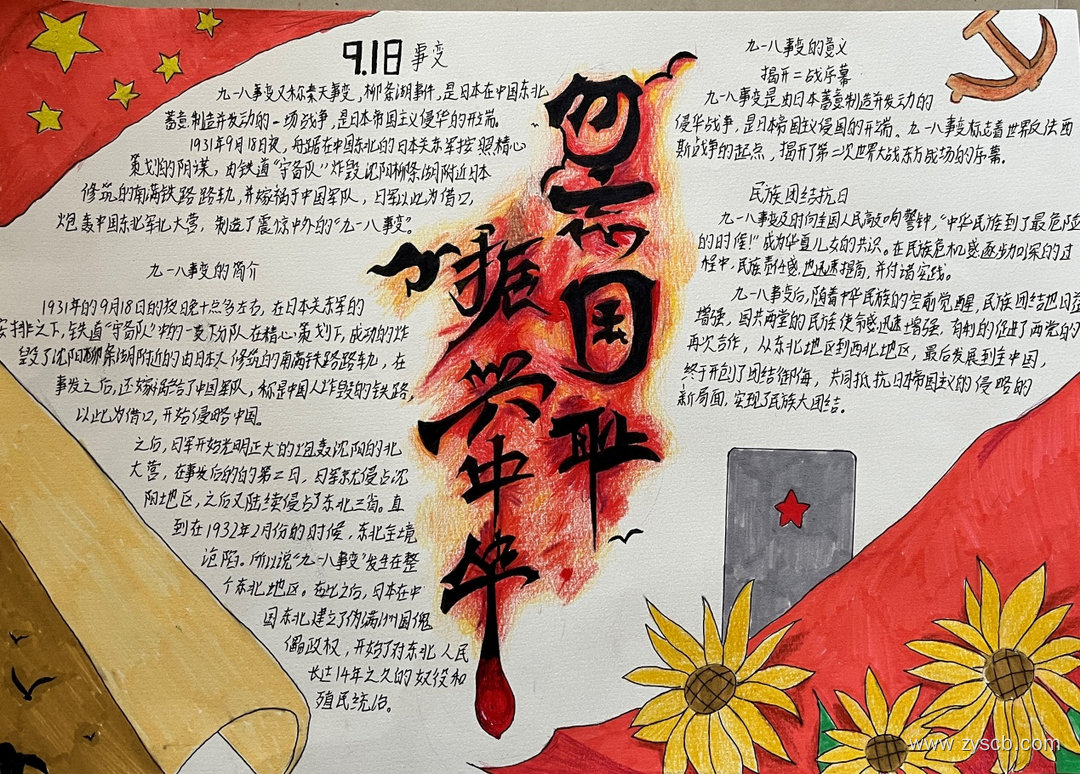 9.18事变
九一八事变又称奉天事变，柳条湖事件，是日本在中国东北
蓄意制造并发动的一场战争，是日本帝国主义侵华的开端。
1931年9月18日夜，
策划的阴谋，由铁道"守备队"炸毁沈阳柳条湖附近日本
修筑的南满铁路路轨，并嫁祸于中国军队，日军以此为借口，
炮轰中国东北军北大营，制造了震惊中外的"九一八事变"。
九一八事变的简介
1931年的9月18日的夜晚十点多左右，在日本关东军的
安排之下，铁道"守备队"中的一支分队在精心策划下，成功的炸
毁了沈阳柳条湖附近的由日本人修筑的南满铁路路轨，在
事发之后，还嫁祸给了中国军队，称是中国人炸毁的铁路，
以此为借口，开始侵略中国。
之后，日军开始光明正大的炮轰沈阳的北
大营，在事发后的的第二日，日军就侵占沈
阳地区，之后又陆续侵占了东北三省。直
到在1932年2月份的时候，东北全境
沦陷。所以说"九一八事变"发生在整
个东北地区。在此之后，日本在中
国东北建立了伪满洲国傀
儡政权，开始了对东北人民
长达14年之久的奴役和
殖民统治。
勿忘国耻
振兴中华
九一八事变的意义
揭开二战序幕
九一八事变是由日本蓄意制造并发动的
侵华战争，是日本帝国主义侵国的开端。九一八事变标志着世界反法西
斯战争的起点，揭开了第二次世界大战东方战场的序幕。
民族团结抗日
九一八事变及时向全国人民敲响警钟，"中华民族到了最危险
的时候！"成为华夏儿女的共识。在民族危机感逐步加深的过
程中，民族责任感也迅速提高，并付诸实践。
九一八事变后，随着中华民族的空前觉醒，民族团结也日益
增强，国共两党的民族使命感迅速增强，有利的促进了两党的
再次合作，从东北地区到西北地区，最后发展到全中国，
终于开创了团结御侮，共同抵抗日本帝国主义的侵略的
新局面，实现了民族大团结。
www.zyscb.com